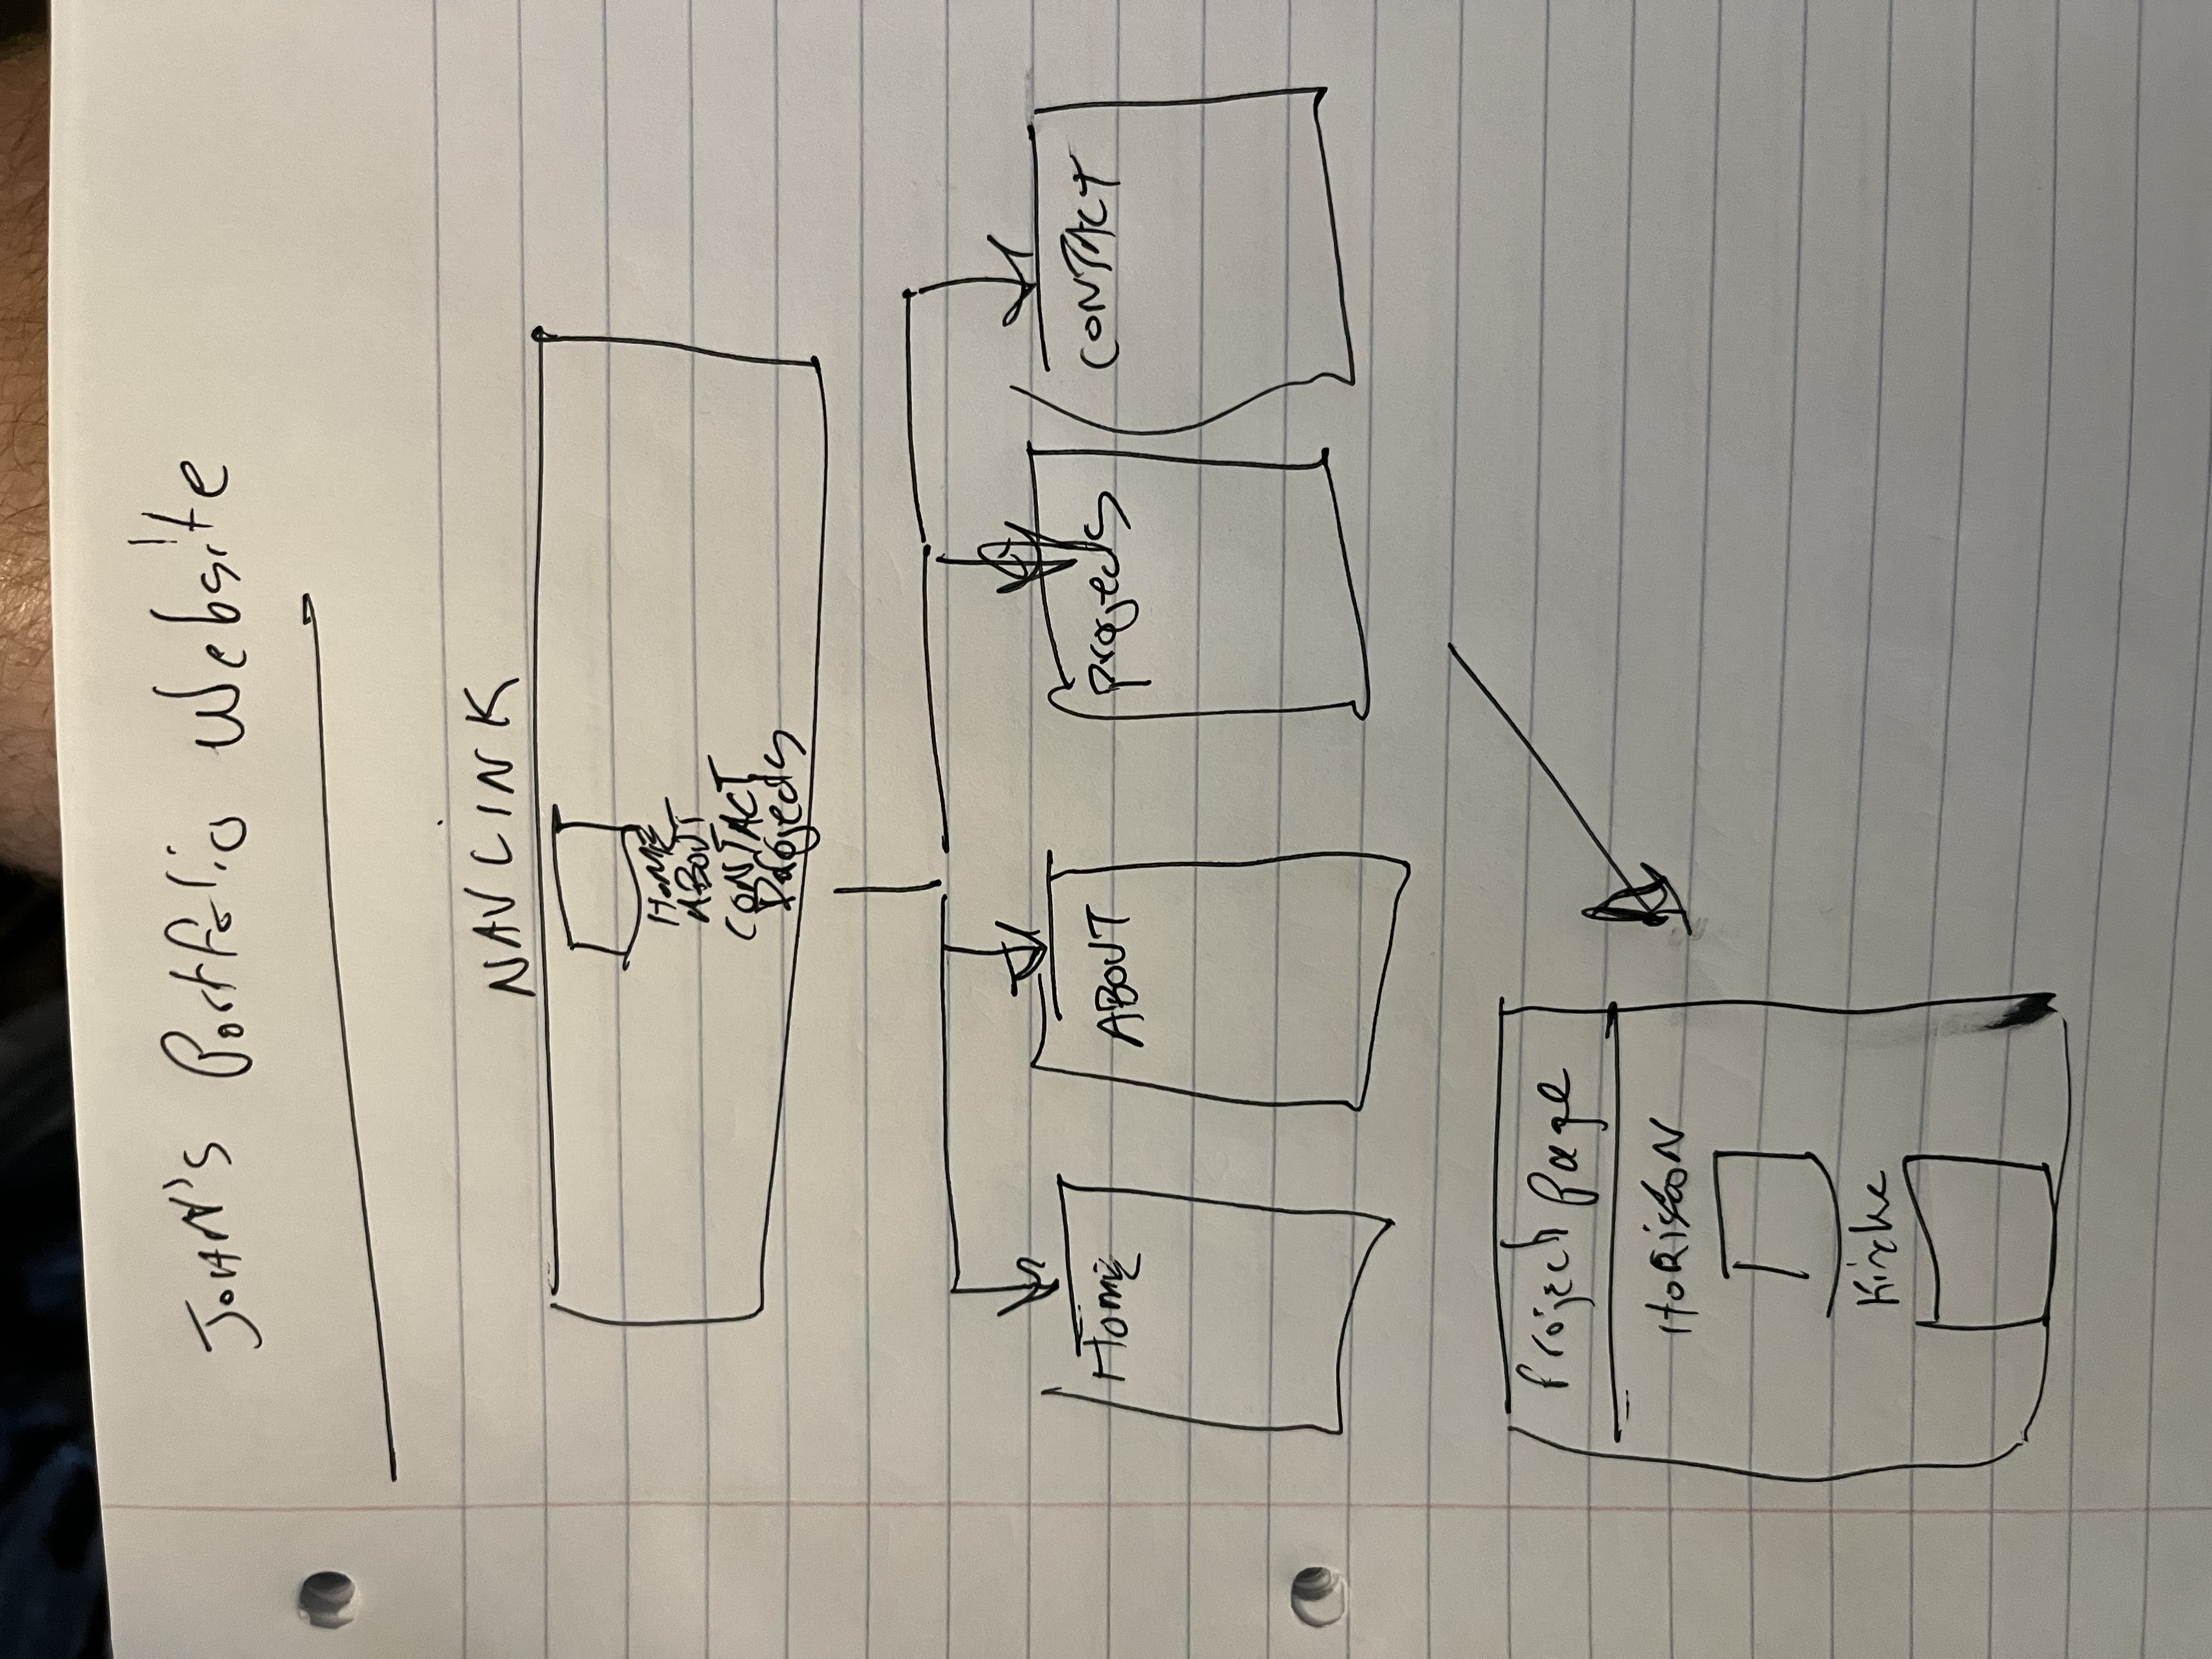 JOHN's Portfolio Website
NAVLINK
HOME
ABOUT
CONTACT
Projects
Home
ABOUT
projects
CONTACT
Project Page